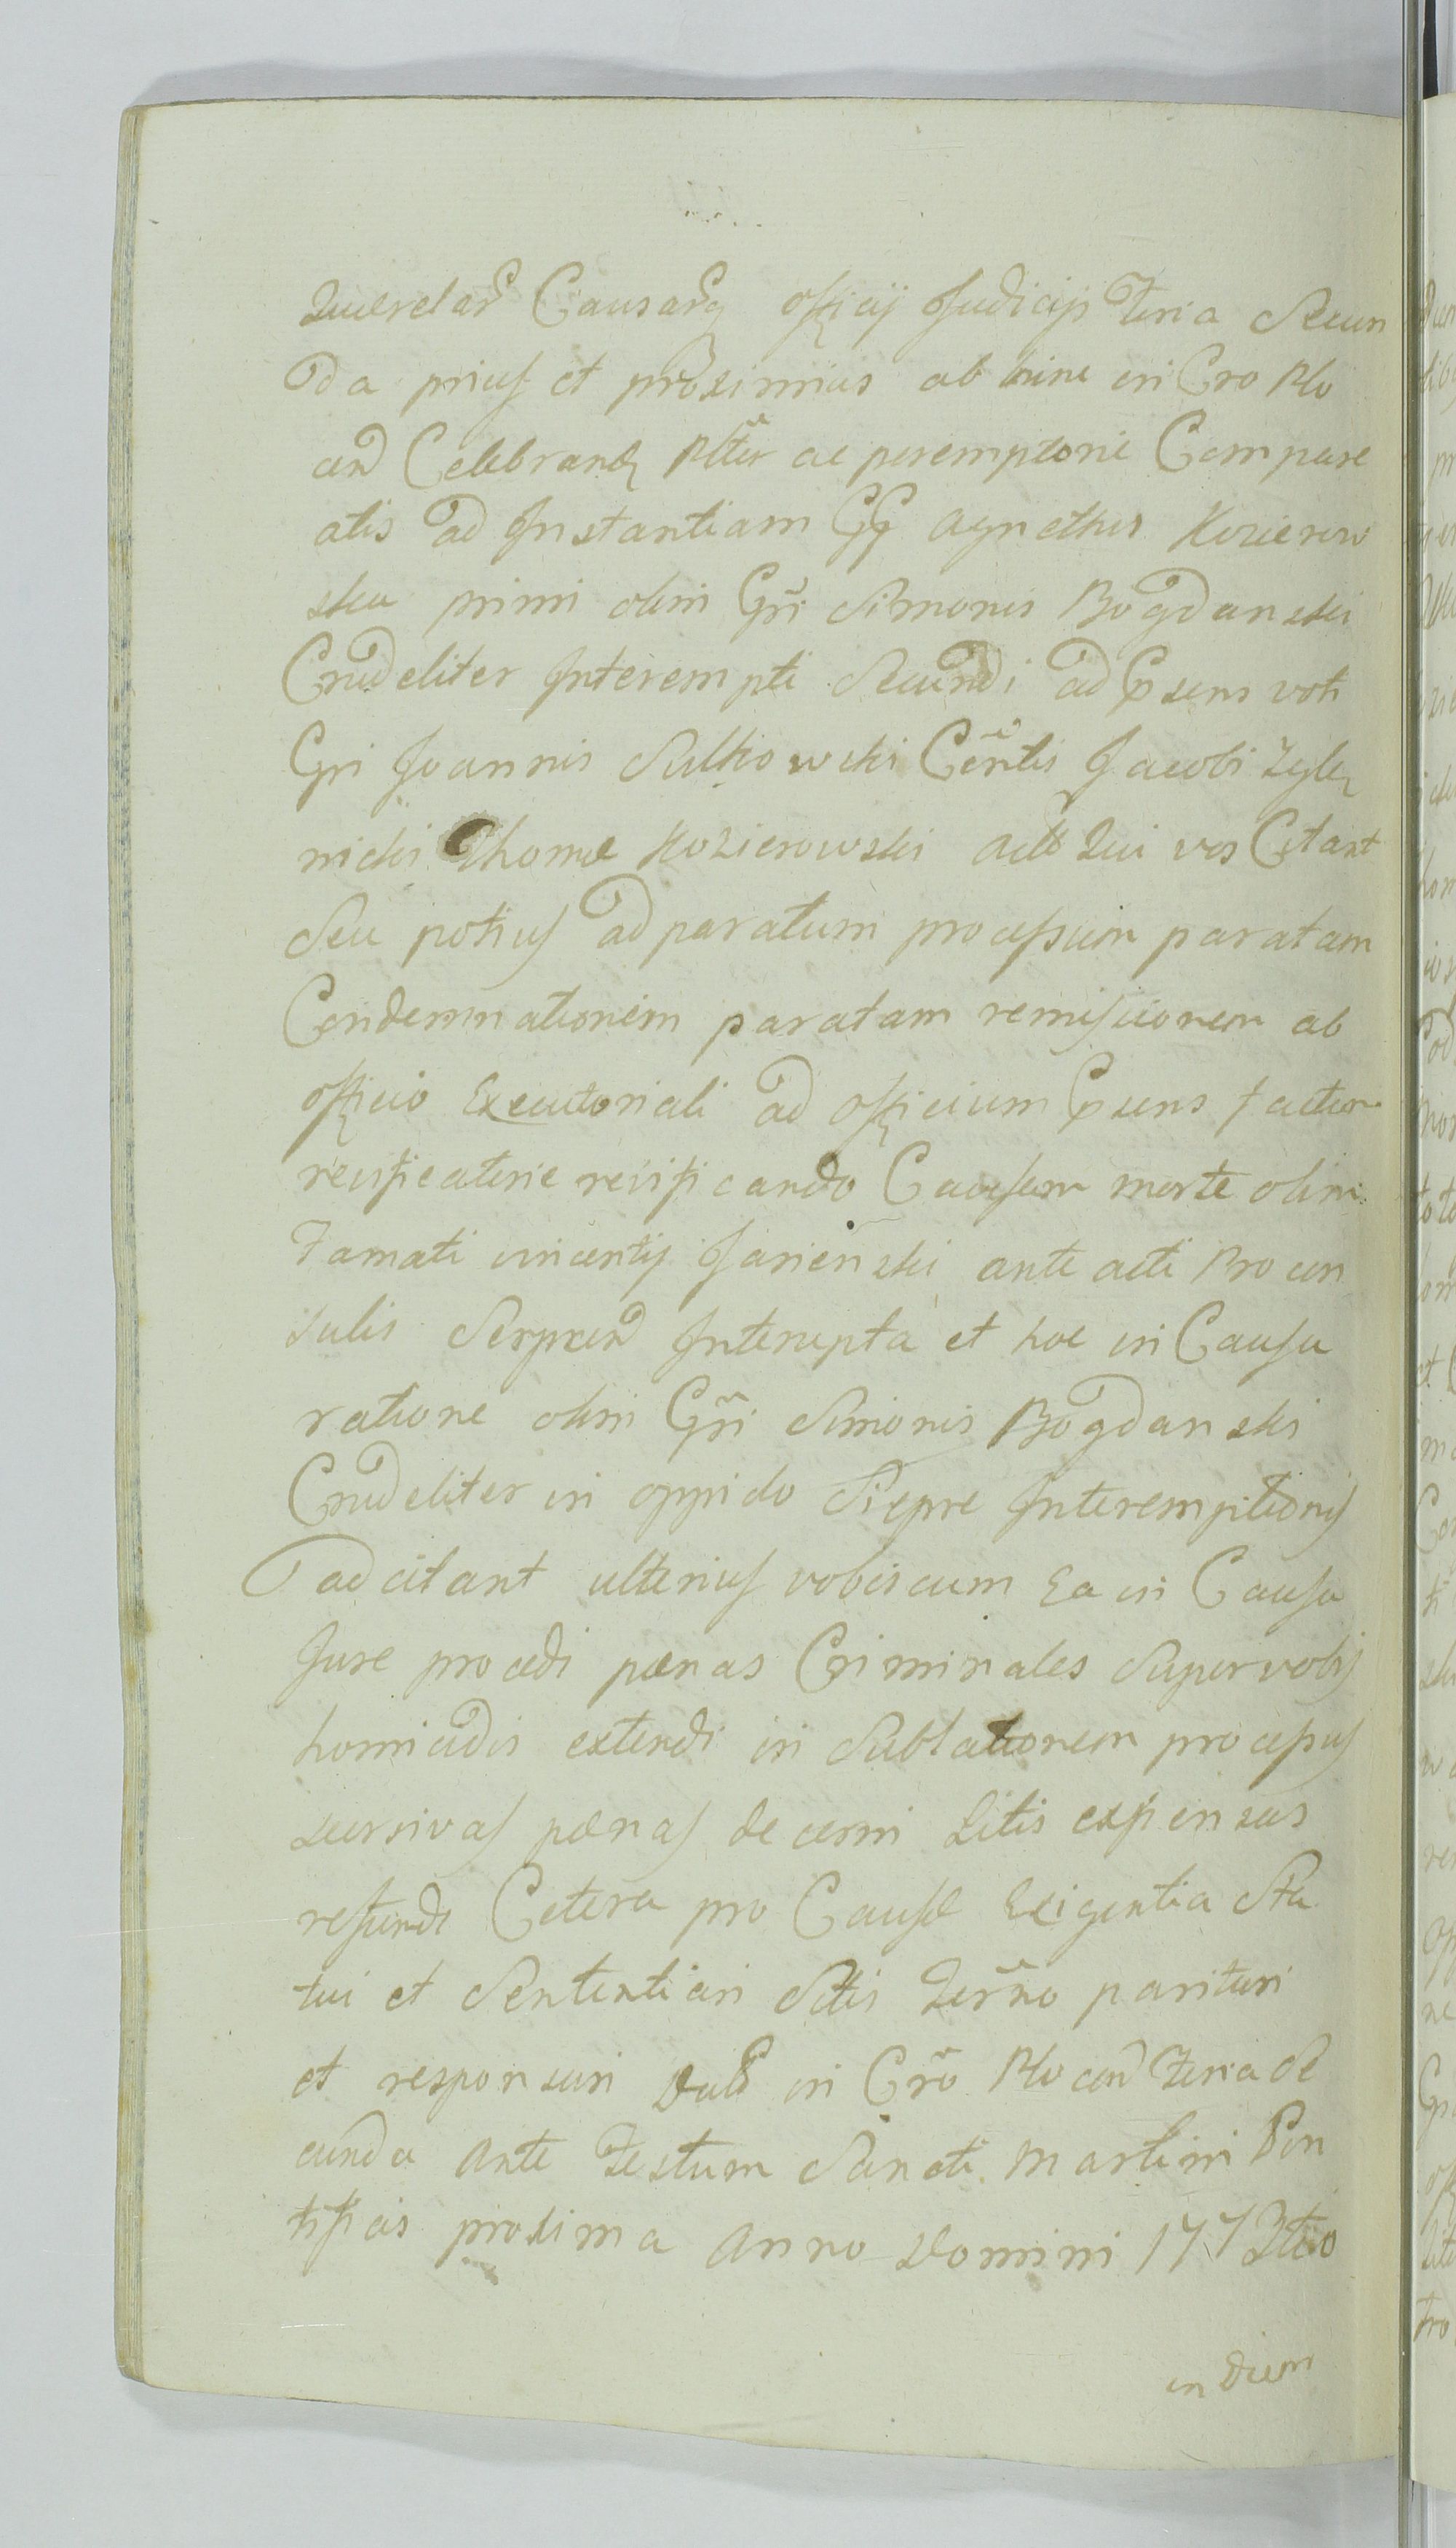 Querelar Causarq officij Judicijs Feria Secun
da prius et proximius ab hinc in Cro Plo
cen Celebrand Plter ac peremptorie Compare
atis ad Instantiam GG Agnethis Kozierow
ska primi olim Gri Simonis Bogdanski
Crudeliter Interempti Secundi ad Psens voti
Gri Joannis Sulkowski Contis Jacobi
nicki Thomæ Kozierowski Act Qui vos Citant
Seu potius ad paratum processum paratam
Condemnationem paratam remissionem ab
officio Executoriali ad officium Psens factam
reuificatorie reuificando Causam morte olim
Famati vincentij Jarienski ante acti Procon
sulis Serpcen Interrupta et hoc in Causa
ratione olim Gri Simonis Bogdanski
Crudeliter in oppido Sierpre Interemptionis
adcitant ulterius vobiscum Ea in Causa
Jure procedi pænas Criminales Super vobis
homicidis extendi in Sublationem processus
cursivas pænas decerni Litis expensas
refundi Cetera pro Causæ Exigentia Sta
tui et Sententiari Sitis Terno parituri
et responsuri Dat in Gro Plocen Feria Se
cunda Ante Festum Sancti Martini Pon
tificis proxima Anno Domini 177
in Diem